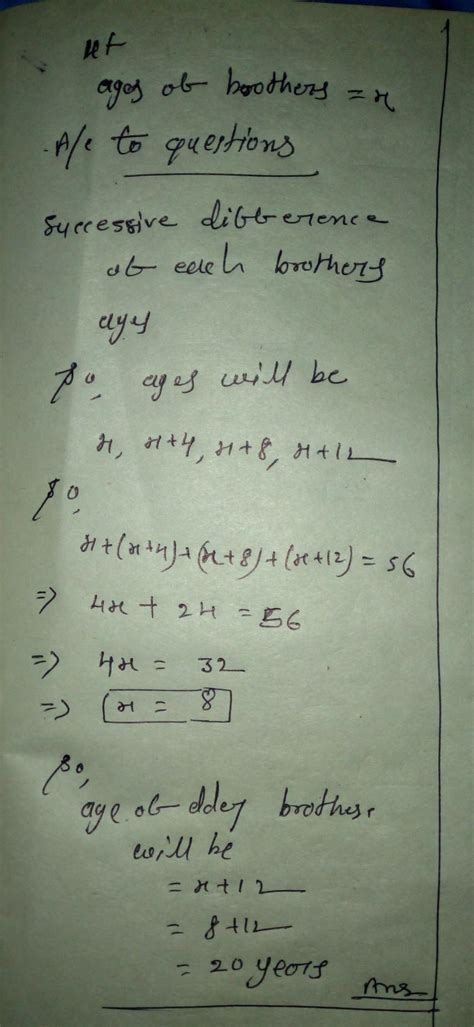 let
ages of brothers = x
A/c to questions
Successive difference
of each brothers
ages
So, ages will be
x, x+4, x+8, x+12
So,
x+(x+4)+(x+8)+(x+12) = 56
=> 4x + 24 = 56
=> 4x = 32
=> x = 8
So,
age of elder brother
will be
= x+12
= 8+12
= 20 years
Ans